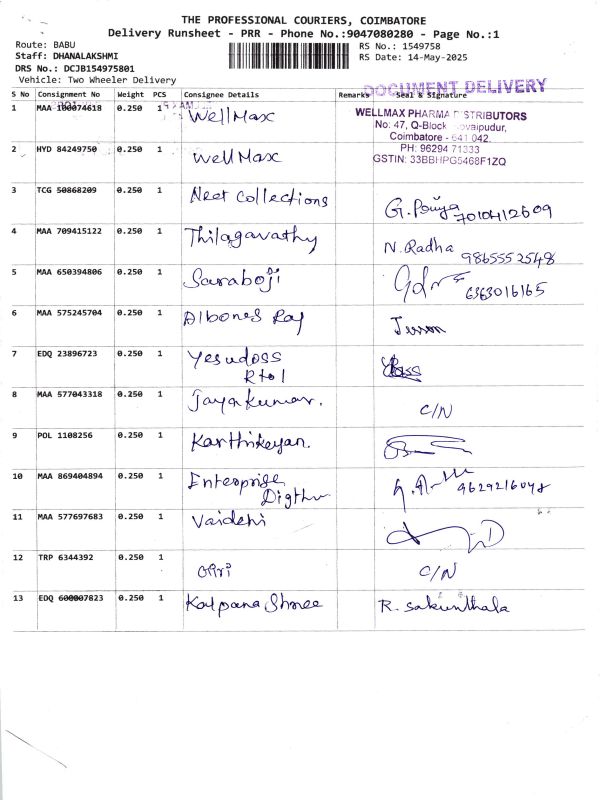 THE PROFESSIONAL COURIERS, COIMBATORE
Delivery Runsheet - PRR - Phone No.:9047080280 - Page No.:1
Route: BABU
Staff: DHANALAKSHMI
DRS No.: DCJB154975801
Vehicle: Two Wheeler Delivery
RS No.: 1549758
RS Date: 14-May-2025
DOCUMENT DELIVERY
S No Consignment No Weight PCS Consignee Details Remarks Seal & Signature
WELLMAX PHARMA DISTRIBUTORS
No: 47, Q-Block
Coimbatore - 641 042.
PH: 96294 71333
GSTIN: 33BBHPG5468F1ZQ
1 MAA 100074618 0.250 1 WellMax
2 HYD 84249750 0.250 1 WellMax
3 TCG 50868209 0.250 1 Neet Collections G. 7010412609
4 MAA 709415122 0.250 1 Thilagavathy N. Radha 9865552548
5 MAA 650394806 0.250 1 Saraboji 6363016165
6 MAA 575245704 0.250 1 Albones Raj
7 EDQ 23896723 0.250 1 Yesudoss
8 MAA 577043318 0.250 1 Jayakumar. C/N
9 POL 1108256 0.250 1 Karthikeyan.
10 MAA 869404894 0.250 1 Enterprise 9629216048
11 MAA 577697683 0.250 1 Vaidehi
12 TRP 6344392 0.250 1 Giri C/N
13 EDQ 600007823 0.250 1 Kalpana Shree R. Sakunthala